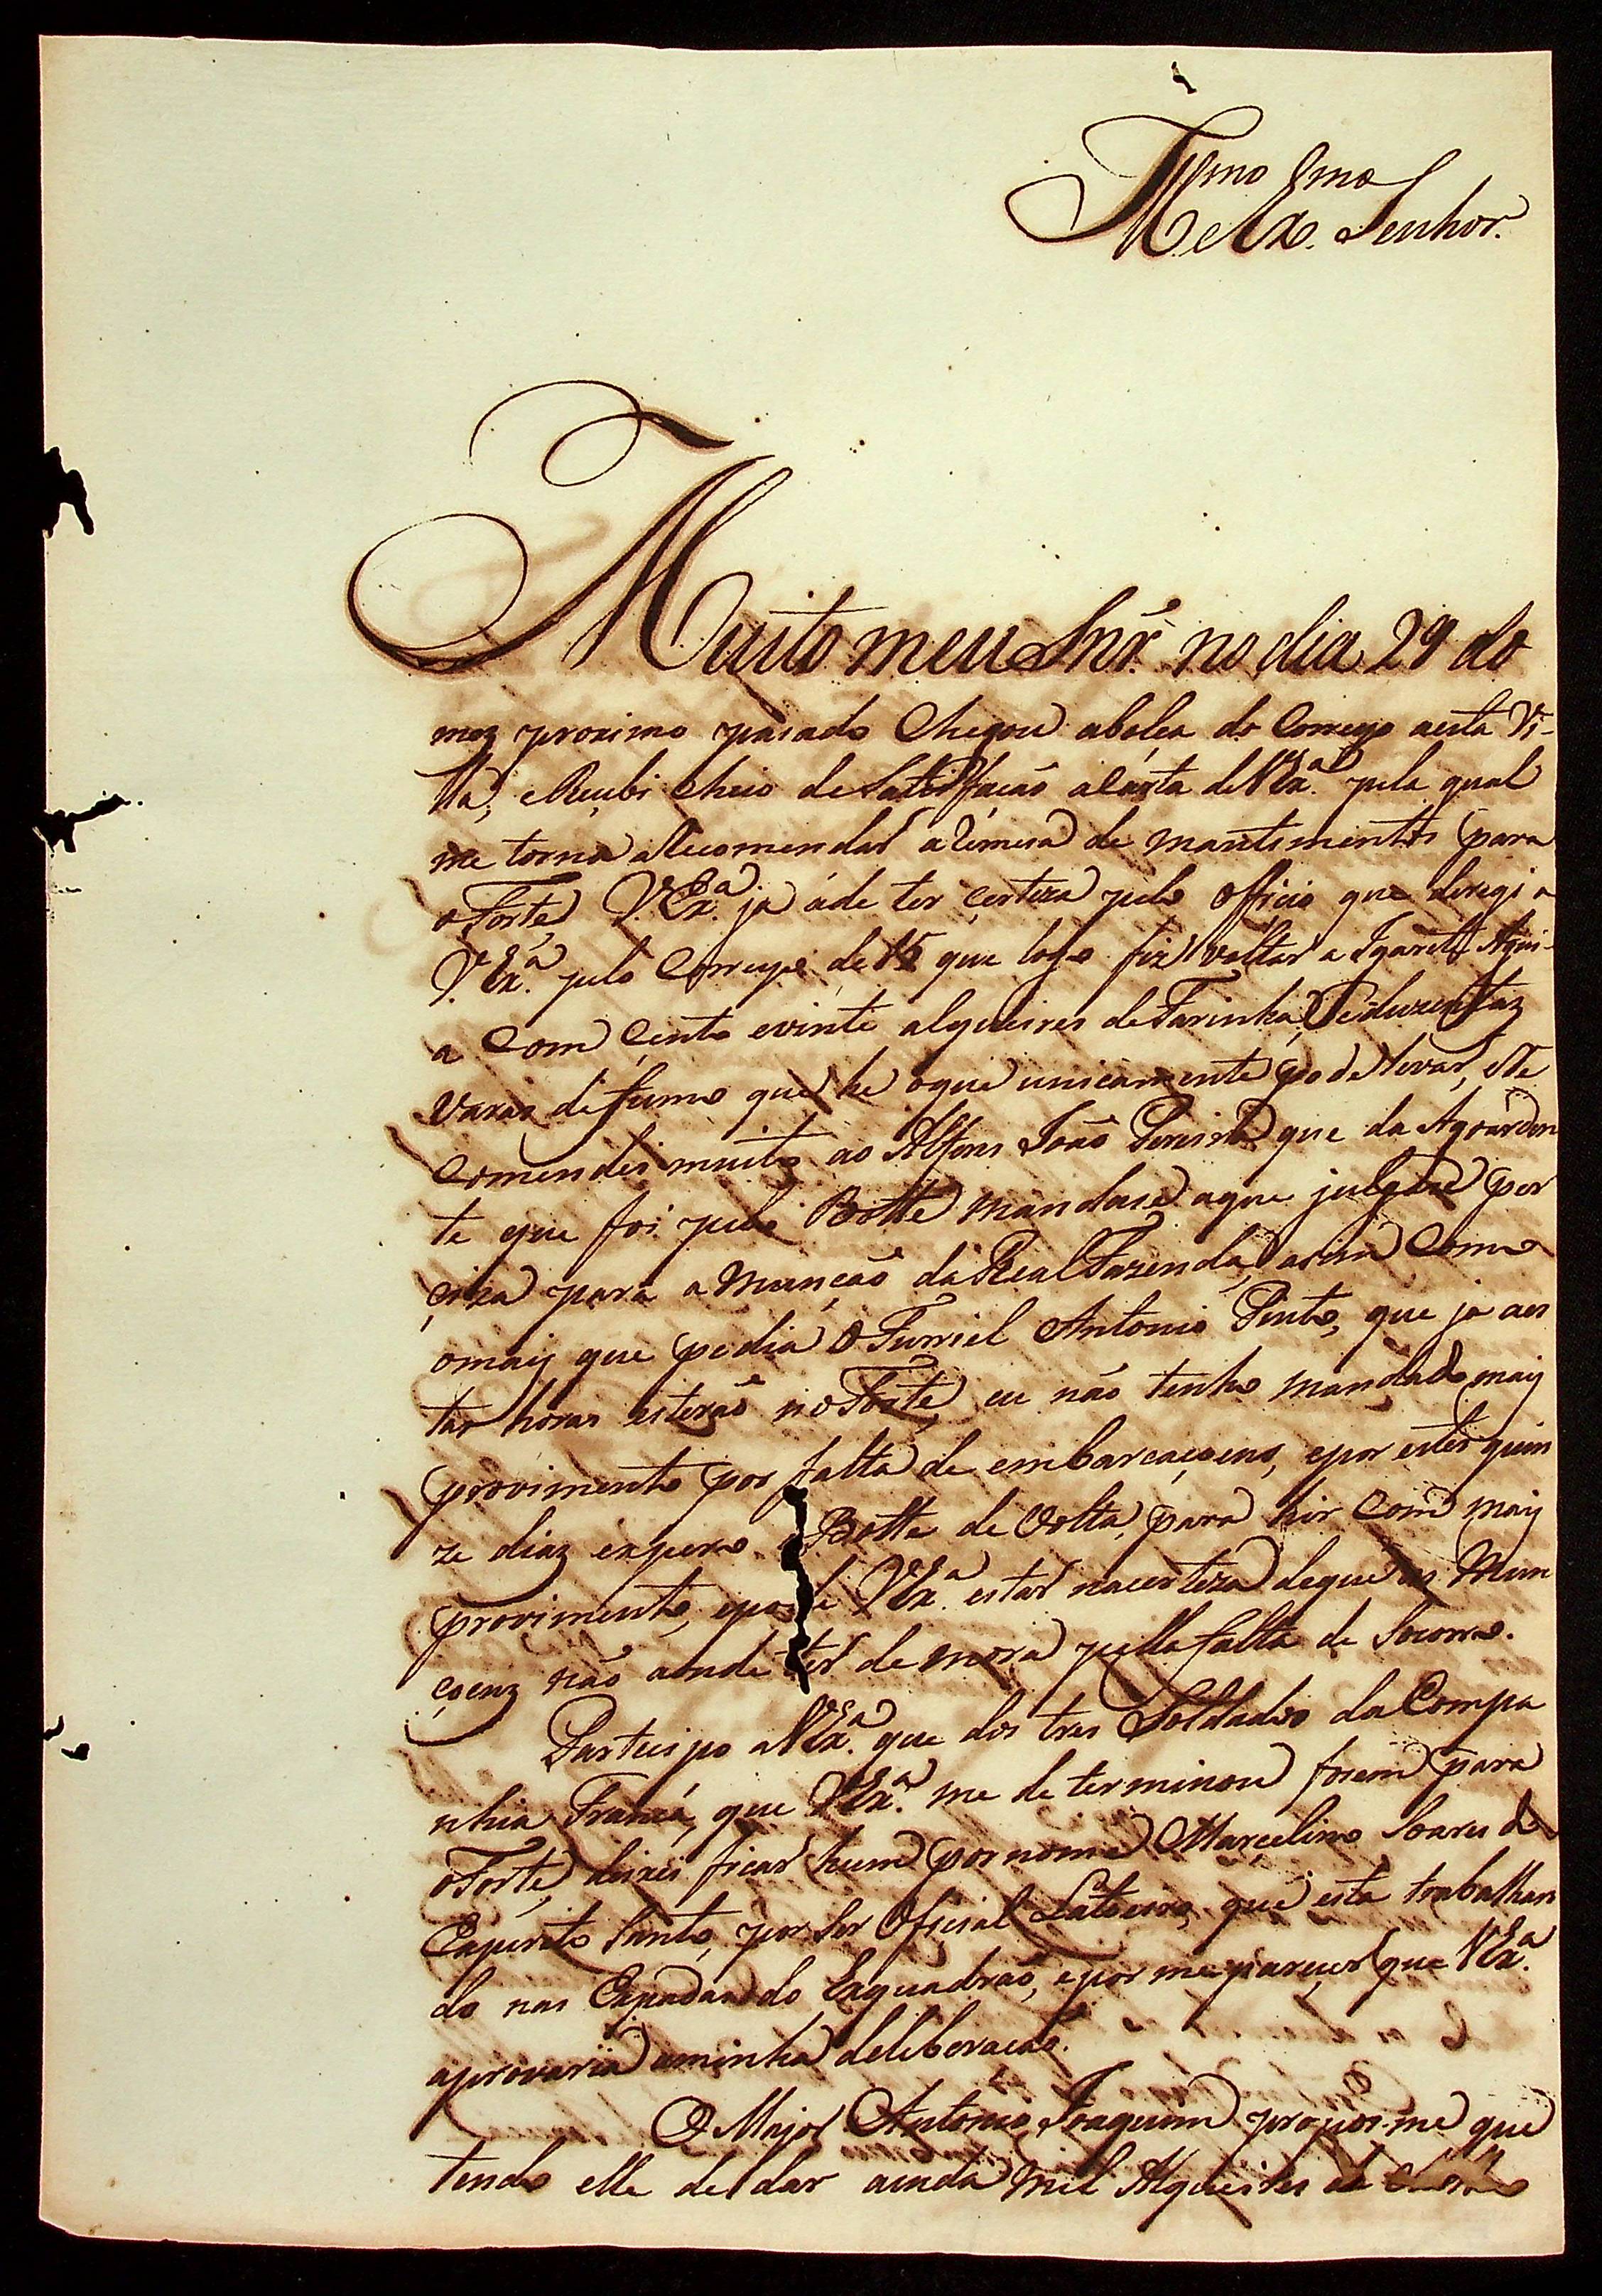 Illmo e Exmo Senhor.
Muito meu Snr. no dia 29 do
mez proximo pasado Chegou abolça do Correyo aesta Vi-
lla, e Recubi Cheio de Satisffação aCarta deVExa. pela qual
me torna aRecomendar aRemesa de mantimentos para
oForte, V.Exa. ja áde ter çerteza pelo officio que deregi a
V.Exa. pelo Correyo de 15 que logo fiz voltar a Igarité Agui-
a Com Çento evinte alqueires deFarinha, eduzentaz
varas defumo que he oque unicamente pode levar, eRe
comendei muito ao Alferes João Pereira que da Agoarden
te que foi pelo Botte mandase aque julgase per
çiza para a Munção da Real Fazenda, asim Como
omaiz que pedia O Furriel Antonio Pinto, que ja aes
tas horas esterão noForte, eu não tenho mandado maiz
provimento por falta de embarcaçoens, epor estes quin
ze diaz espero o Botte de Volta, para hir Com maiz
provimento, epode VExa. estar nacerteza deque as Mun
çoenz não ande ter demora pella falta de Socorro.
Partecipo aVExa. que dos tres Soldados da Compa
nhia Franca, que VExa. me determinou fosem para
oForte, deixei ficar hum por nome Marçelino Soares do
Espirito Santo, por Ser Ofiçial Latoeiro, que esta trabalhan
do nas Espadas do Esquadrão, epor me pareçer que VExa.
aprovaria aminha deliberação.
O Major Antonio Joaquim propos-me que
tendo elle de dar ainda mil Alqueires de